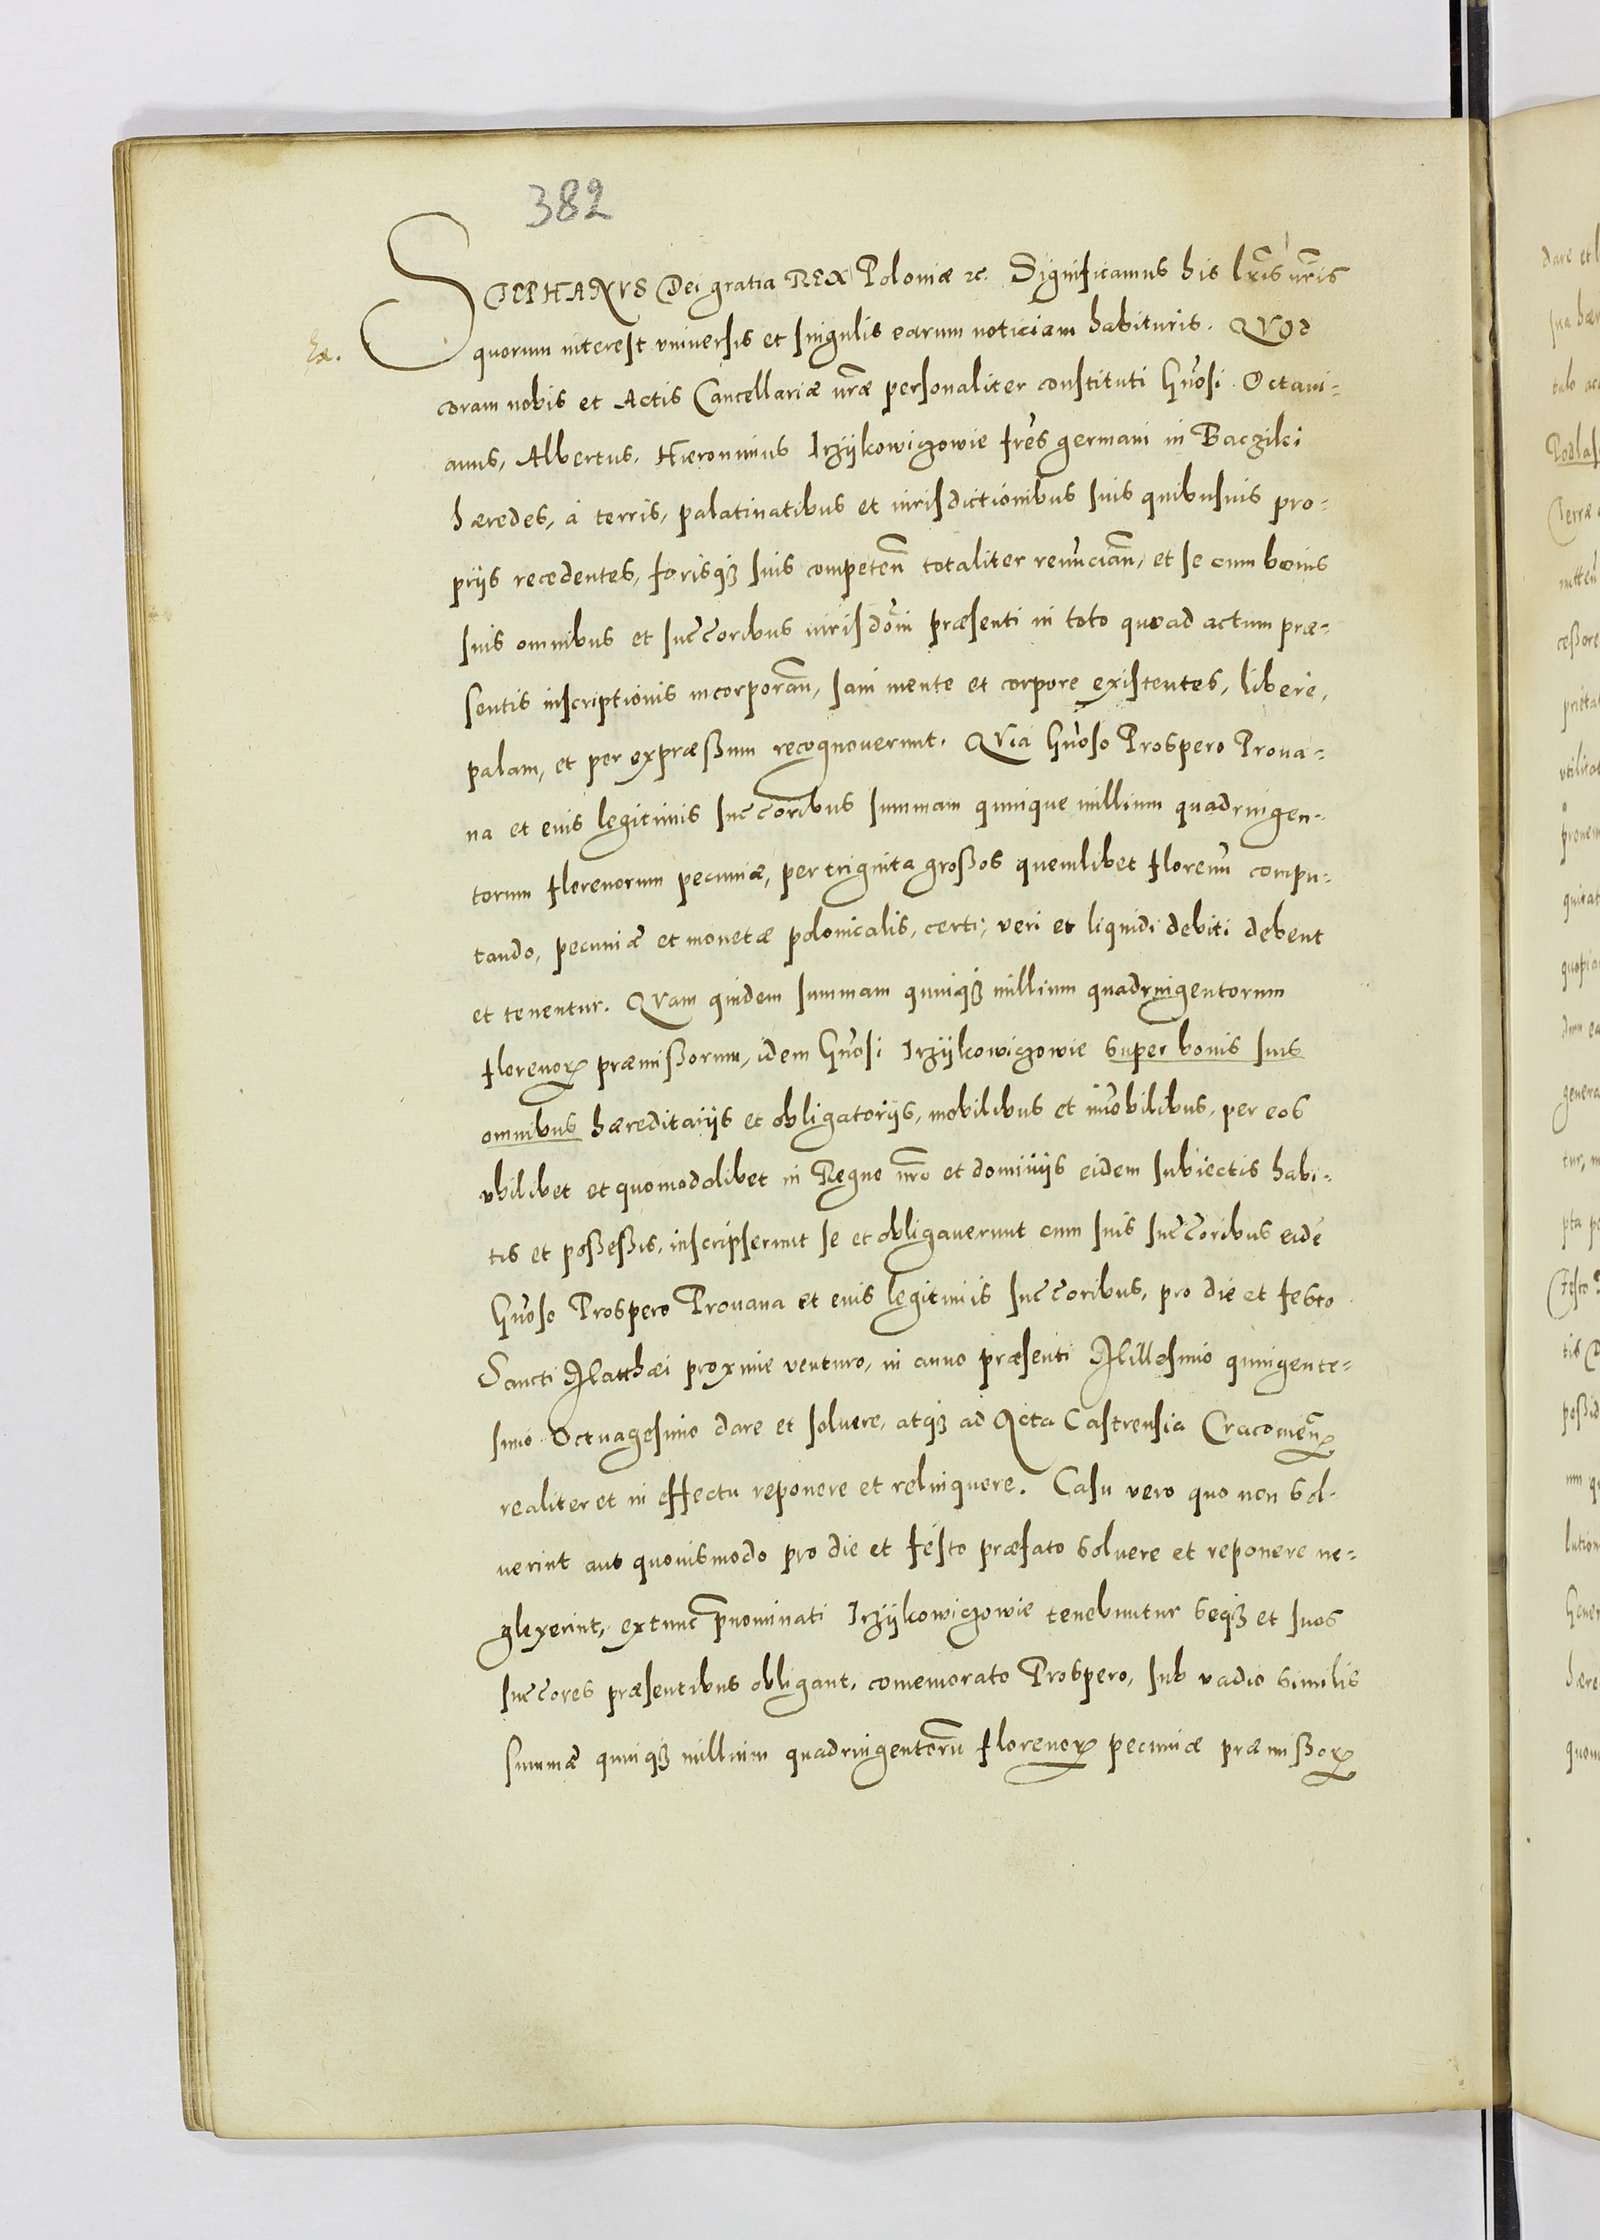 382
STEPHANVS Dei gratia REX Poloniæ etc. Significamus his lr̃is nr̃is
quorum interest vniuersis et singulis earum noticiam habituris. QVOd
coram nobis et Actis Cancellariæ nr̃æ personaliter constituti Gn̄osi Octaui-
anus, Albertus, Hieronimus Irzijkowiczowie fr̃es germani in Baczilei
hæredes, á terris, palatinatibus et iurisdictionibus suis quibusuis pro-
priis recedentes, forisq́ suis competen̄ totaliter renūcian̄, et se cum bonis
suis omnibus et succ̃oribus iurisdōni præsenti in toto quoad actum præ-
sentis inscriptionis incorporan̄, sani mente et corpore existentes, liberè,
palam, et per expræßum recognouerunt. QVia Gn̄oso Prospero Proua-
na et eius legitimis succ̃oribus summam quinque millium quadringen-
torum florenorum pecuniæ, per triginta großos quemlibet florenū compu-
tando, pecuniæ et monetæ polonicalis, certi, veri et liquidi debiti debent
et tenentur. QVam quidem summam quinq́ millium quadringentorum
florenoꝝ præmißorum, idem Gn̄osi Irzijkowiczowie super bonis suis
omnibus hæreditariis et obligatoriis, mobilibus et im̄obilibus, per eos
vbilibet et quomodolibet in Regno nr̃o et dominiis eidem subiectis habi-
tis et poßeßis, inscripserunt se et obligauerunt cum suis succ̃oribus eidē
Gn̄oso Prospero Prouana et eius legitimis succ̃oribus, pro die et festo
Sancti Matthæi proxime venturo, in anno præsenti Millesimo quingente-
simo Octuagesimo dare et soluere, atq́ ad Acta Castrensia Cracouien̄
realiter et in effectu reponere et relinquere. Casu vero quo non sol-
uerint aut quouismodo pro die et festo præfato soluere et reponere ne-
glexerint, extunc p̄nominati Irzijkowiczowie tenebuntur seq́ et suos
succ̃ores præsentibus obligant, comemorato Prospero, sub vadio similis
summæ quinq́ millium quadringentorū florenoꝝ pecuniæ præmißoꝝ